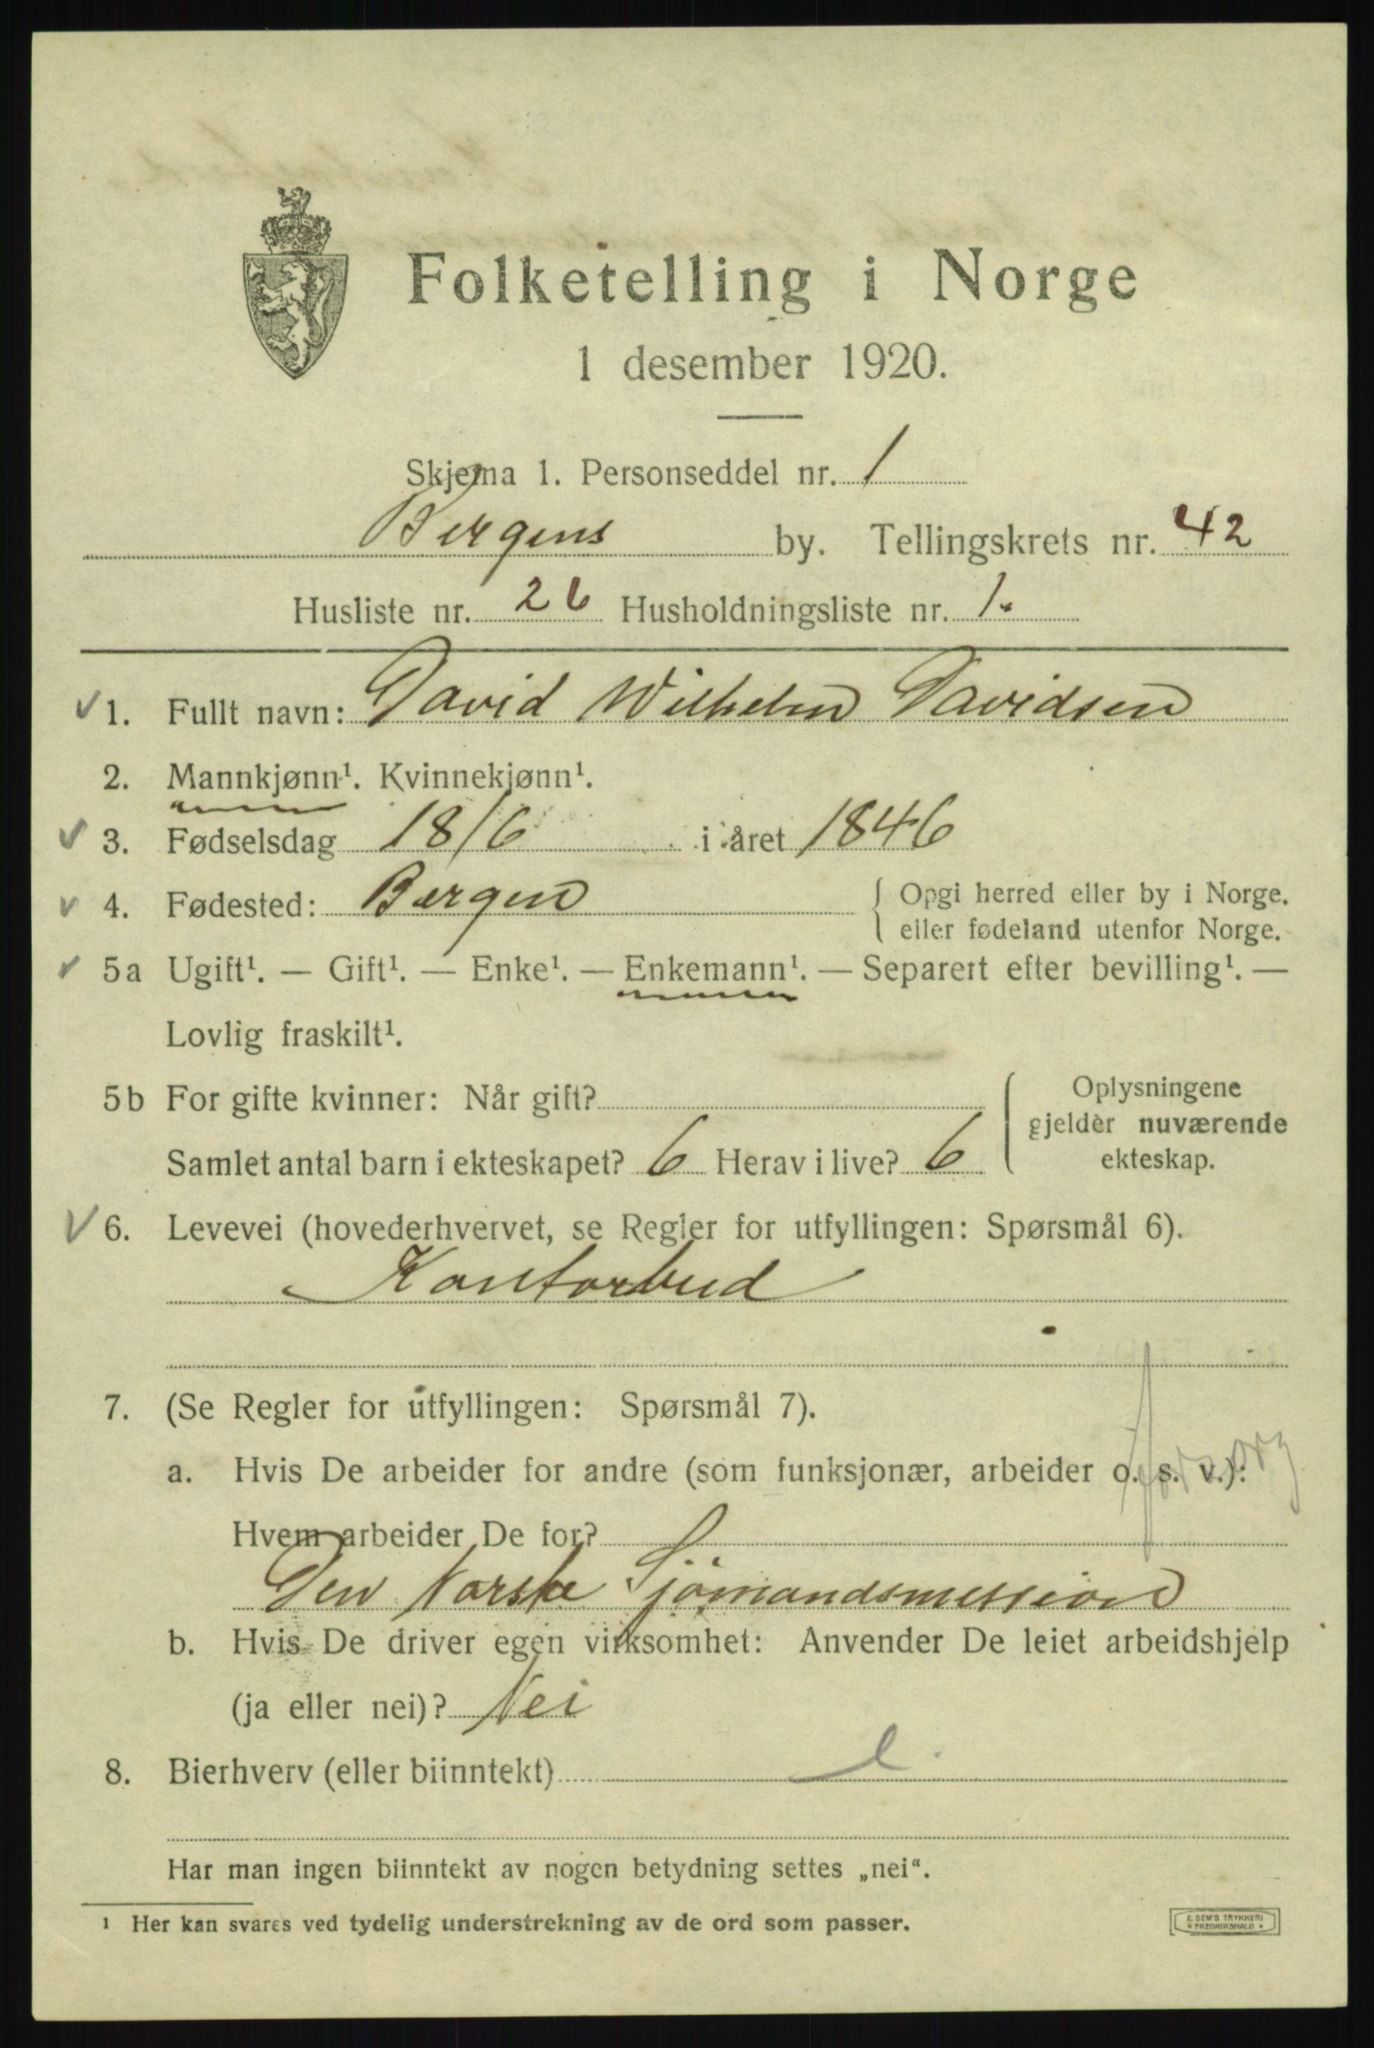 Folketelling i Norge
1 desember 1920.
Skjema 1. Personseddel nr. 1
Bergens by. Tellingskrets nr. 42
Husliste nr. 26 Husholdningsliste nr. 1.
1. Fullt navn: David Wilhelm Davidsen
2. Mannkjønn¹. Kvinnekjønn¹.
3. Fødselsdag 18/6 i året 1846
4. Fødested: Bergen { Opgi herred eller by i Norge.
eller fødeland utenfor Norge.
5a Ugift¹. — Gift¹. — Enke¹. — Enkemann¹. — Separert efter bevilling¹. —
Lovlig fraskilt¹.
5b For gifte kvinner: Når gift? { Oplysningene
gjelder nuværende
Samlet antal barn i ekteskapet? 6 Herav i live? 6 ekteskap.
6. Levevei (hovederhvervet, se Regler for utfyllingen: Spørsmål 6).
Kontorbud
7. (Se Regler for utfyllingen: Spørsmål 7).
a. Hvis De arbeider for andre (som funksjonær, arbeider o. s. v.):
Hvem arbeider De for?
Den Norske Sjömandsmission
b. Hvis De driver egen virksomhet: Anvender De leiet arbeidshjelp
(ja eller nei)? Nei
8. Bierhverv (eller biinntekt)
Har man ingen biinntekt av nogen betydning settes „nei“.
¹ Her kan svares ved tydelig understrekning av de ord som passer.
E. SEM'S TRYKKERI
* FREDRIKSHALD *